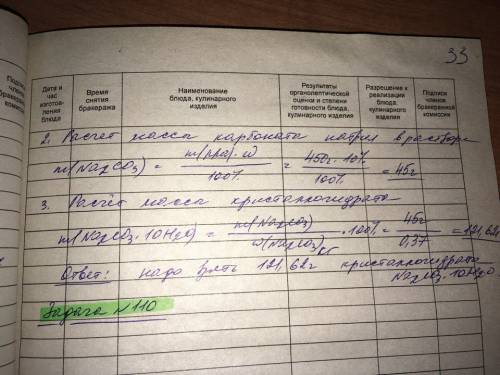 33
Дата и час изготовления блюда
Время снятия бракеража
Наименование блюда, кулинарного изделия
Результаты органолептической оценки и степени готовности блюда, кулинарного изделия
Разрешение к реализации блюда, кулинарного изделия
Подписи членов бракеражной комиссии
2. Расчет массы карбоната натрия в растворе
m(Na2CO3) = m(р-ра)·w / 100% = 450г·10% / 100% = 45г
3. Расчёт массы кристаллогидрата
m(Na2CO3·10H2O) = m(Na2CO3) / w(Na2CO3)кг · 100% = 45г / 0,37 = 121,62г
Ответ: надо взять 121,62г кристаллогидрата
Na2CO3·10H2O
Задача №110